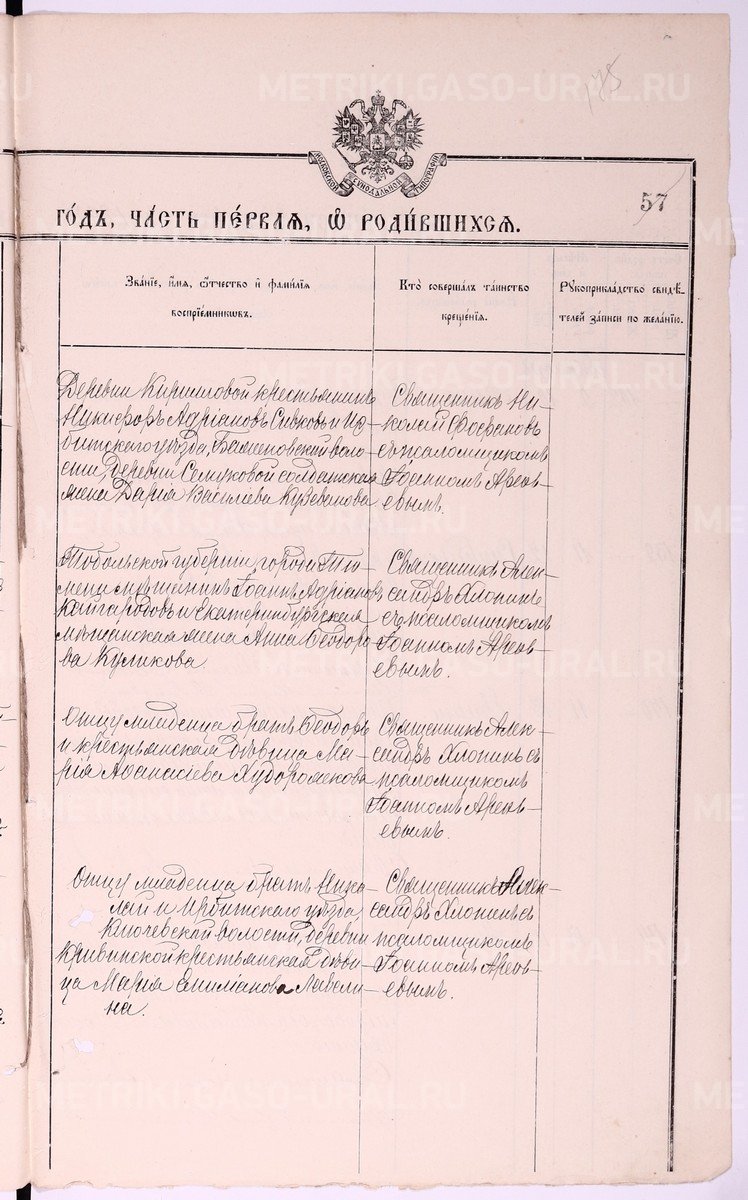 175
МОСКОВСКОЙ СѴНОДАЛЬНОЙ ТИПОГРАФІИ
57
ГО́ДЪ, ЧА́СТЬ ПЕ́РВАЯ, Ѽ РОДИ́ВШИХСЯ.
Зва́ніе, и́мя, ѻ҆́тчество и҆ фами́лія
воспріе́мникѡвъ.
Кто̀ соверша́лъ та́инство
креще́нія.
Рꙋкоприкла́дство свидѣ́-
телей за́писи по жела́нію.
Деревни Кирилловой крестьянинъ
Никифоръ Адріановъ Сивковъ и Ир-
битскаго уѣзда, волос-
сти, деревни Семуковой солдатская
жена Дарія Васильева
Священникъ Ни-
колай
съ псаломщикомъ
Іоанномъ Арен-
евымъ.
Тобольской губерніи, города Тю-
мени мѣщанинъ Іоаннъ Адріановъ
Кайгородовъ и Екатеринбургская
мѣщанская жена Анна Ѳеодоро-
ва Куликова
Священникъ Алек-
сандръ Хлопинъ
съ псаломщикомъ
Іоанномъ Арен-
евымъ.
Отцу младенца братъ Ѳеодоръ
и крестьянская дѣвица Ма-
рія Аѳанасіева Худорожкова
Священникъ Алек-
сандръ Хлопинъ съ
псаломщикомъ
Іоанномъ Арен-
евымъ.
Отцу младенца братъ Нико-
лай и Ирбитскаго уѣзда,
Ключевской волости, деревни
Кривинской крестьянская дѣви-
ца Марія
на.
Священникъ Алек-
сандръ Хлопинъ съ
псаломщикомъ
Іоанномъ Арен-
евымъ.
METRIKI.GASO-URAL.RU